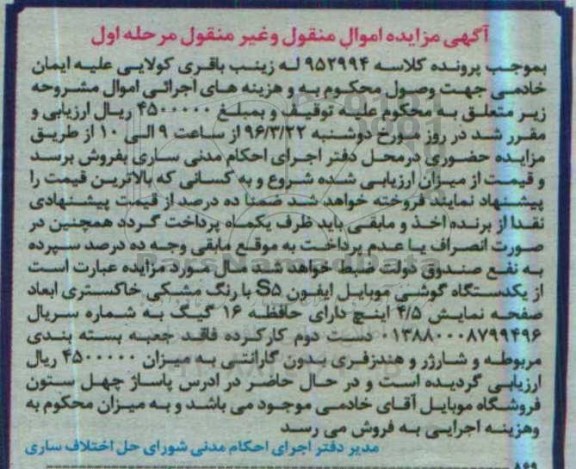 آگهی مزایده اموال منقول وغیر منقول مرحله اول
بموجب پرونده کلاسه ۹۵۲۹۹۴ له زینب باقری کولایی علیه ایمان
خادمی جهت وصول محکوم به و هزینه های اجرائی اموال مشروحه
زیر متعلق به محکوم علیه توقیف و بمبلغ ۴۵۰۰۰۰۰ ریال ارزیابی و
مقرر شد در روز مورخ دوشنبه ۹۶/۳/۲۲ از ساعت ۹ الی ۱۰ از طریق
مزایده حضوری درمحل دفتر اجرای احکام مدنی ساری بفروش برسد
و قیمت از میزان ارزیابی شده شروع و به کسانی که بالاترین قیمت را
پیشنهاد نمایند فروخته خواهد شد ضمنا ده درصد از قیمت پیشنهادی
نقدا از برنده اخذ و مابقی باید ظرف یکماه پرداخت گردد همچنین در
صورت انصراف یا عدم پرداخت به موقع مابقی وجه ده درصد سپرده
به نفع صندوق دولت ضبط خواهد شد مال مورد مزایده عبارت است
از یکدستگاه گوشی موبایل ایفون S۵ با رنگ مشکی خاکستری ابعاد
صفحه نمایش ۴/۵ اینچ دارای حافظه ۱۶ گیگ به شماره سریال
۰۱۳۸۸۰۰۰۸۷۹۹۴۹۶ دست دوم کارکرده فاقد جعبه بسته بندی
مربوطه و شارژر و هندزفری بدون گارانتی به میزان ۴۵۰۰۰۰۰ ریال
ارزیابی گردیده است و در حال حاضر در ادرس پاساژ چهل ستون
فروشگاه موبایل آقای خادمی موجود می باشد و به میزان محکوم به
وهزینه اجرایی به فروش می رسد
مدیر دفتر اجرای احکام مدنی شورای حل اختلاف ساری